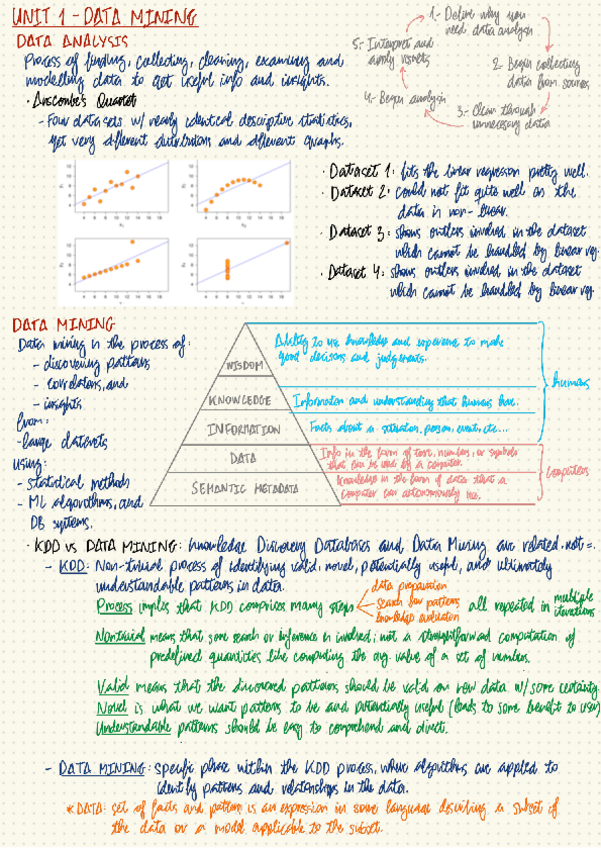 UNIT 1 - DATA MINING
DATA ANALYSIS
Process of finding, collecting, cleaning, examining and
modelling data to get useful info and insights.
· Anscombe's Quartet
- Four datasets w/ nearly identical descriptive statistics,
yet very different distributions and different graphs.
1.- Define why you
need data analysis
2. Begin collecting
data from sources
3.- Clean through
unnecessary data
4.- Begin analysis
5.- Interpret and
apply results
· Dataset 1: fits the linear regression pretty well.
· Dataset 2: could not fit quite well as the
data is non-linear.
· Dataset 3: shows outliers involved in the dataset
which cannot be handled by linear reg.
· Dataset 4: shows outliers involved in the dataset
which cannot be handled by linear reg.
DATA MINING
Data mining is the process of:
- discovering patterns
- correlations, and
- insights
from:
- large datasets
using:
- statistical methods
- ML algorithms, and
DB systems.
WISDOM
Ability to use knowledge and experience to make
good decisions and judgements.
KNOWLEDGE
Information and understanding that humans have.
INFORMATION
Facts about a situation, person, event, etc...
humans
DATA
Info in the form of text, numbers, or symbols
that can be used by a computer.
SEMANTIC METADATA
Knowledge in the form of data that a
computer can autonomously use.
computers
· KDD vs DATA MINING: Knowledge Discovery Databases and Data Mining are related, not =.
- KDD: Non-trivial process of identifying valid, novel, potentially useful, and ultimately
understandable patterns in data.
Process implies that KDD comprises many steps
data preparation
search for patterns
knowledge evaluation
all repeated in multiple
iterations
Nontrivial means that some search or inference is involved; not a straightforward computation of
predefined quantities like computing the avg. value of a set of numbers.
Valid means that the discovered patterns should be valid on new data w/ some certainty.
Novel is what we want patterns to be and potentially useful (leads to some benefit to user)
Understandable patterns should be easy to comprehend and direct.
- DATA MINING: specific phase within the KDD process, where algorithms are applied to
identify patterns and relationships in the data.
* DATA: set of facts and pattern is an expression in some language describing a subset of
the data or a model applicable to the subset.